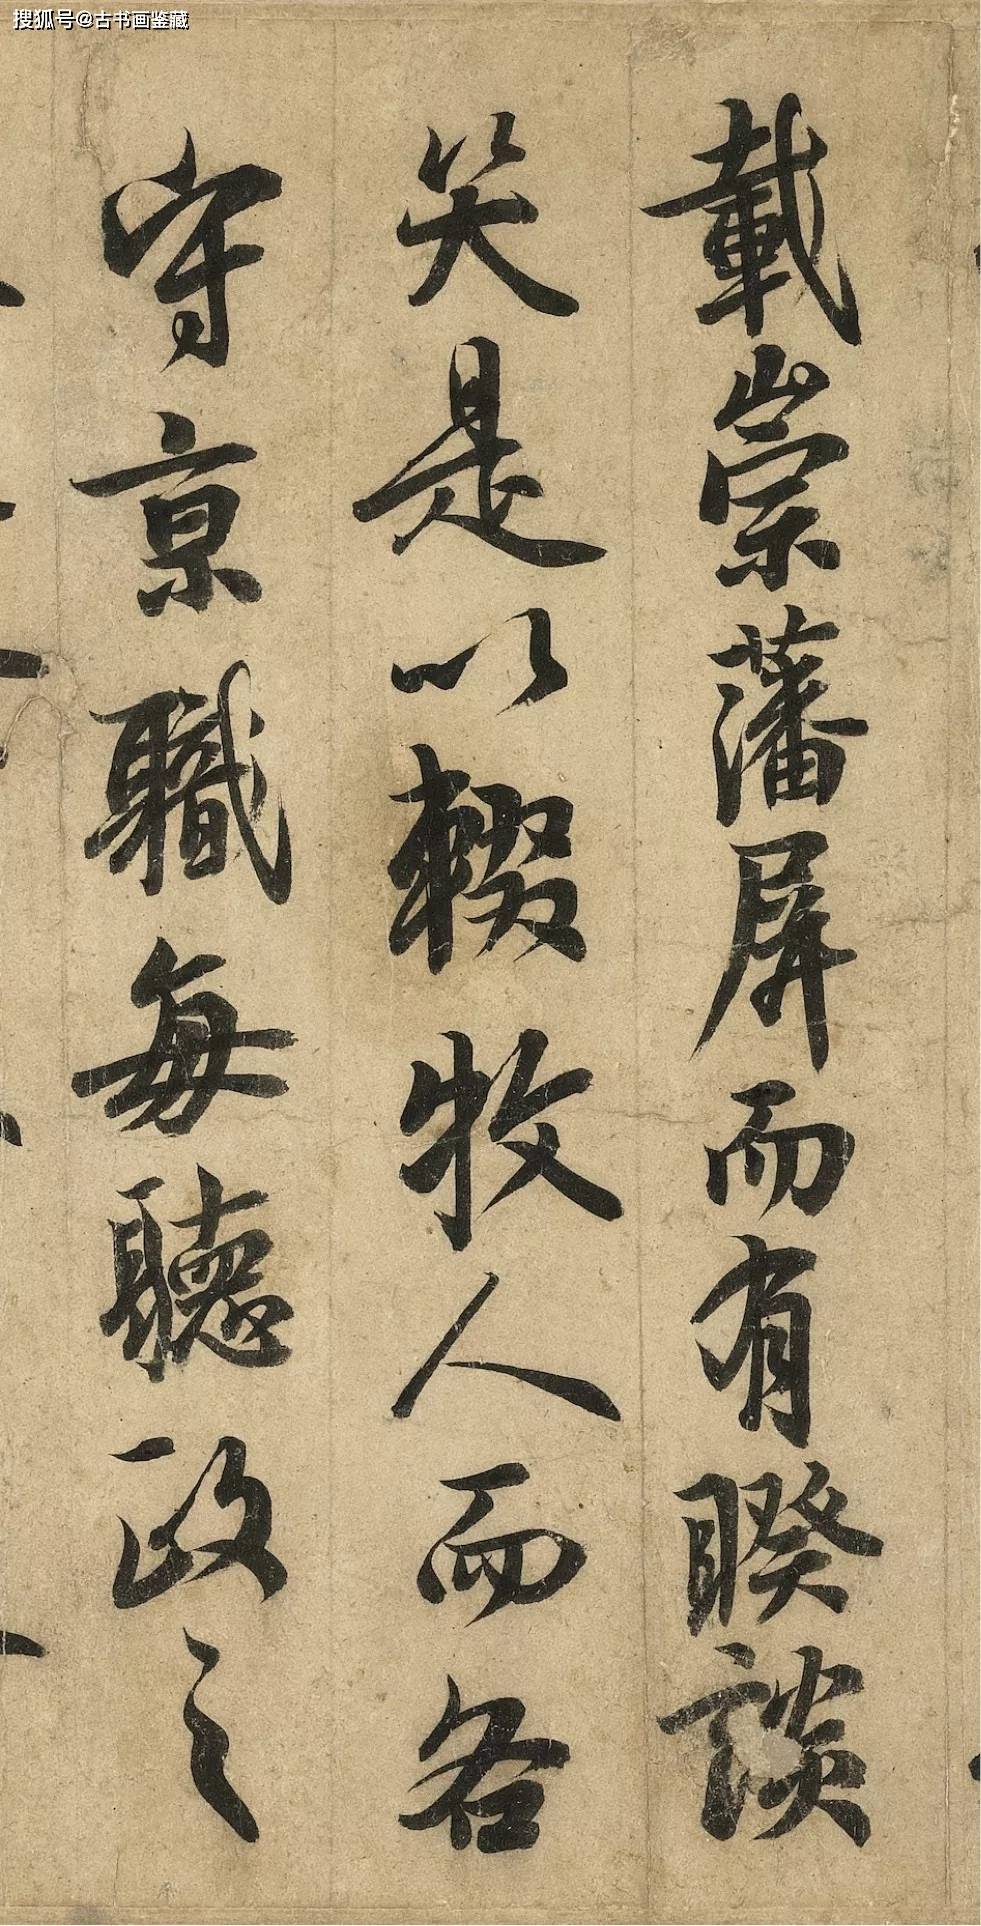 搜狐号@古书画鉴藏
載崇藩屏而有睽談
笑是以輟牧人而各
守京職每聽政之